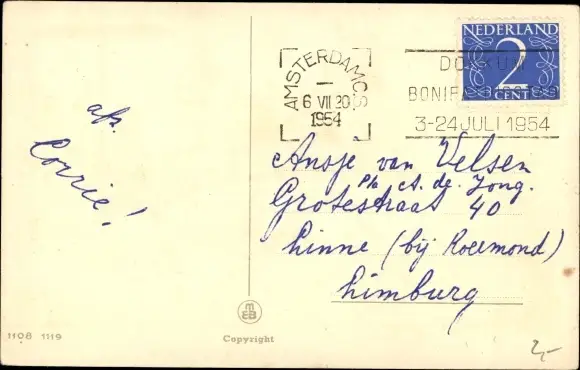 NEDERLAND
2
CENT
AMSTERDAM C.S.
6 VII 20
1954
DOKKUM
3-24 JULI 1954
afz.
Corrie!
Ansje van Velsen
p/a A. de Jong.
Grotestraat 40
Linne (bij Roermond)
Limburg
MEB
1108 1119
Copyright
2,-